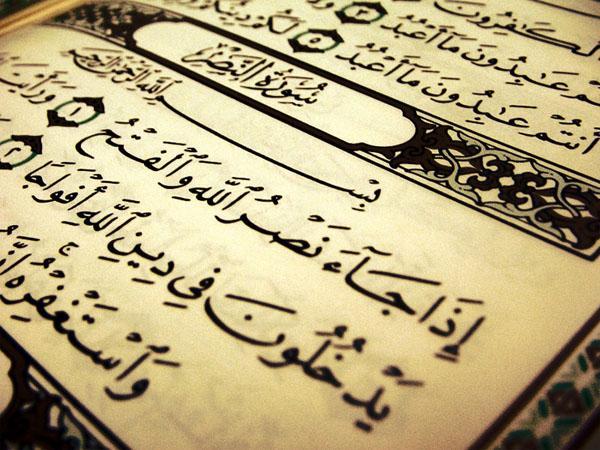 ٱلْكَـٰفِرُونَ
أَنتُمْ عَـٰبِدُونَ مَآ أَعْبُدُ ٣
أَنتُمْ عَـٰبِدُونَ مَآ أَعْبُدُ ٥ لَكُمْ دِينُكُمْ
سُورَةُ النَّصْرِ
بِسْمِ ٱللَّهِ ٱلرَّحْمَـٰنِ ٱلرَّحِيمِ
إِذَا جَآءَ نَصْرُ ٱللَّهِ وَٱلْفَتْحُ ١ وَرَأَيْتَ
يَدْخُلُونَ فِى دِينِ ٱللَّهِ أَفْوَاجًا ٢
وَٱسْتَغْفِرْهُ ۚ